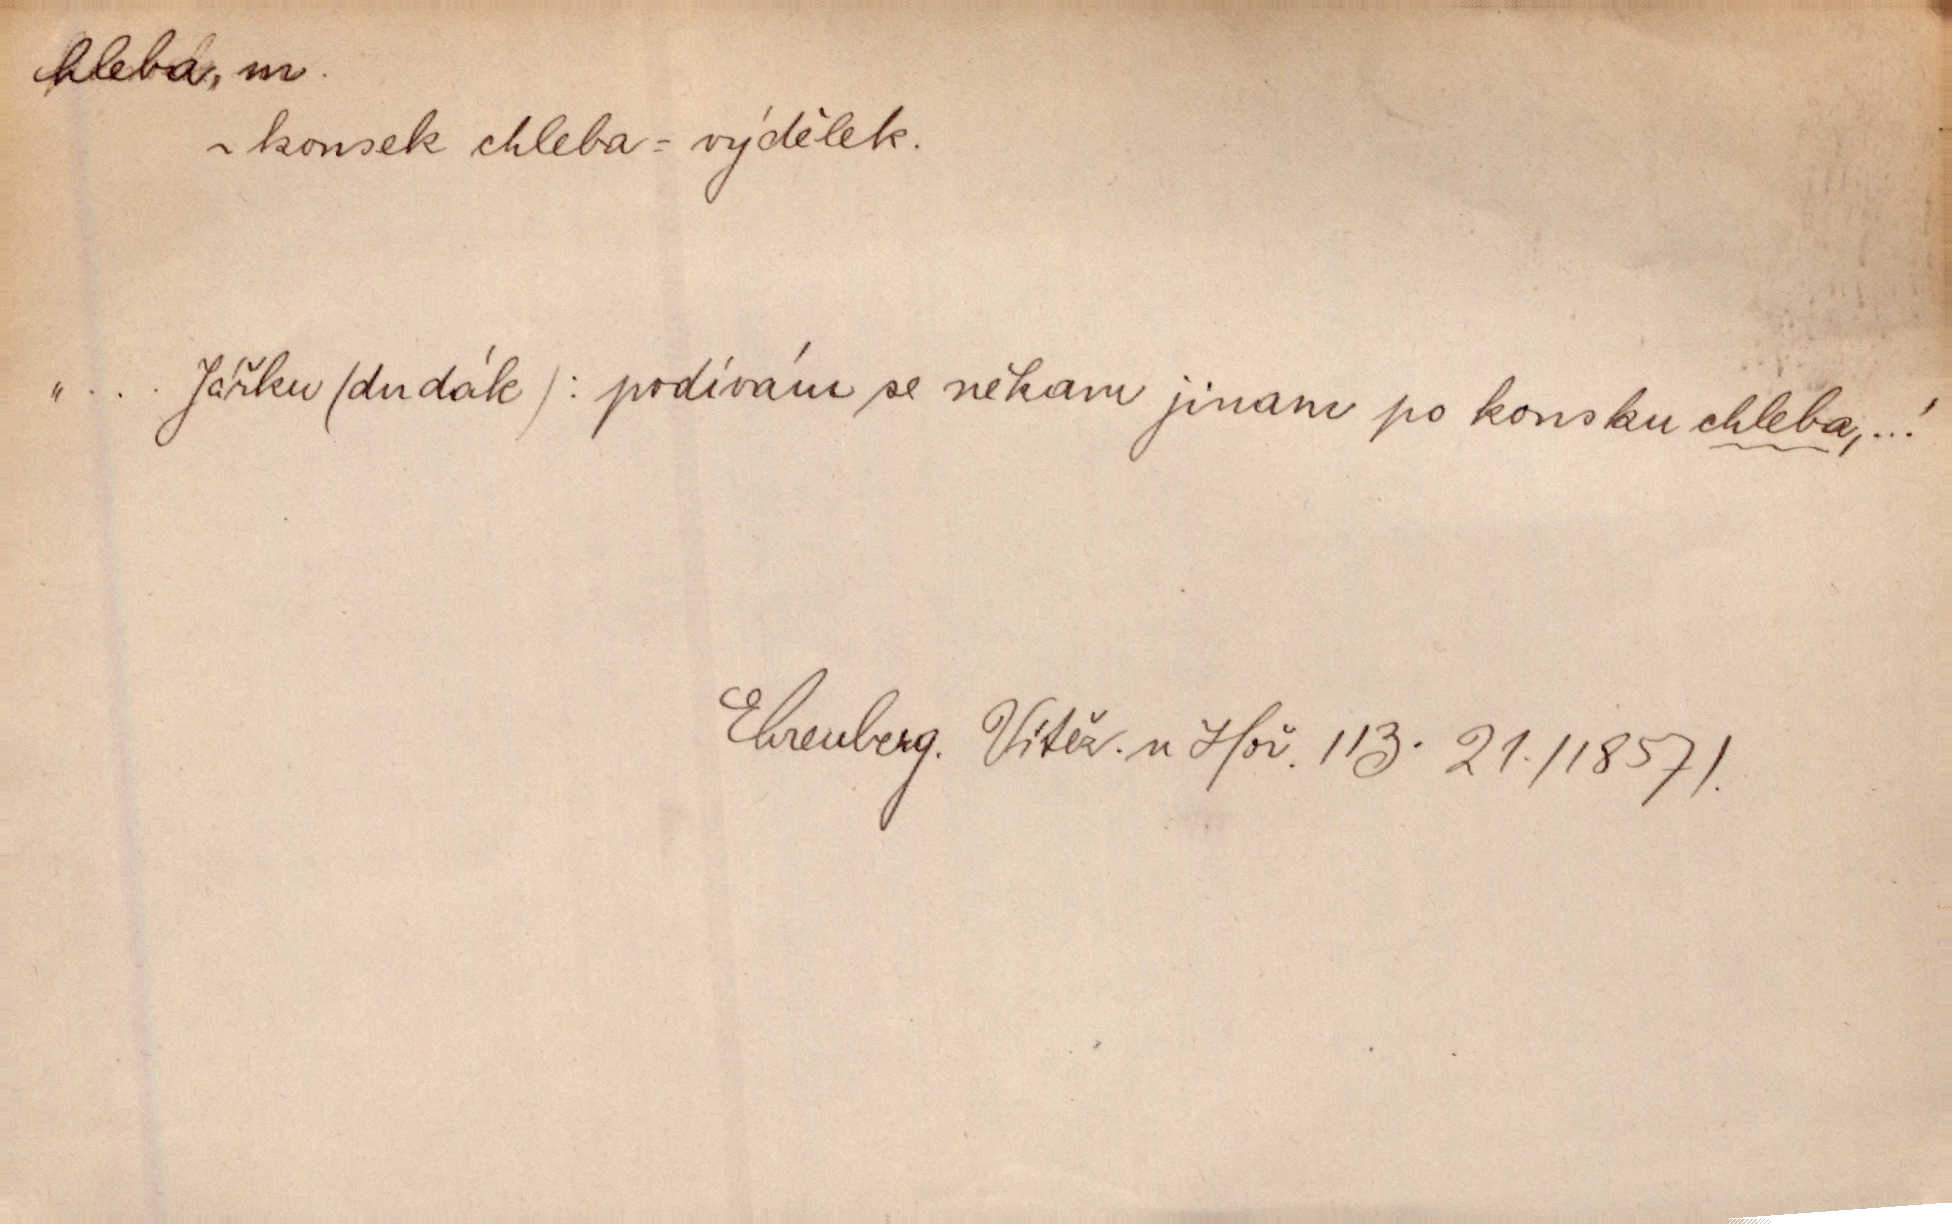 chleba, m.
~ kousek chleba = výdělek.
"... Jářku (dudák): podívám se někam jinam po kousku chleba,...'
Ehrenberg. Vítěz. u Hoř. 113. 21./1857/.